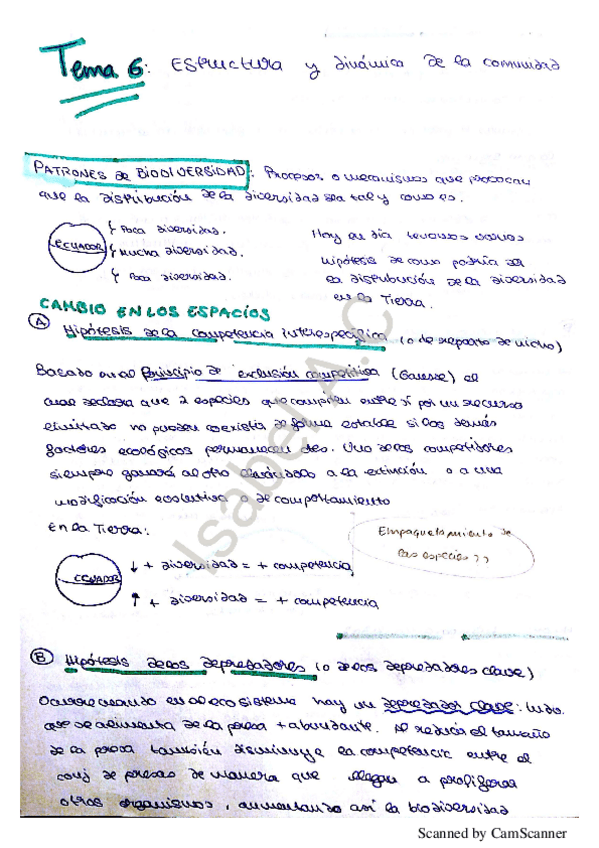 Tema 6: Estructura y dinámica de la comunidad
PATRONES de BIODIVERSIDAD: Procesos o mecanismos que provocan
que la distribución de la diversidad sea tal y como es.
{ Poca diversidad.
ECUADOR { Mucha diversidad.
{ Poca diversidad.
Hoy en día tenemos varias
hipótesis de como podría ser
la distribución de la diversidad
en la Tierra.
CAMBIO EN LOS ESPACIOS
A Hipótesis de la competencia interespecífica (o de reparto de nicho)
Basado en el Principio de exclusión competitiva (Gausse) el
cual declara que 2 especies que compiten entre sí por un recurso
limitado no pueden coexistir de forma estable si los demás
factores ecológicos permanecen ctes. Uno de los competidores
siempre ganará al otro llevándolo a la extinción o a una
modificación evolutiva o de comportamiento
en la Tierra:
Empaquetamiento de
las especies ??
ECUADOR ↓ + diversidad = + competencia
↑ + diversidad = + competencia
B Hipótesis de los depredadores (o de los depredadores clave)
Ocurre cuando en el ecosistema hay un depredador clave: indv.
que se alimenta de la presa + abundante. Al reducir el tamaño
de la presa también disminuye la competencia entre el
conj de presas de manera que llegan a proliferar
otros organismos, aumentando así la biodiversidad
Isabel A.C
Scanned by CamScanner